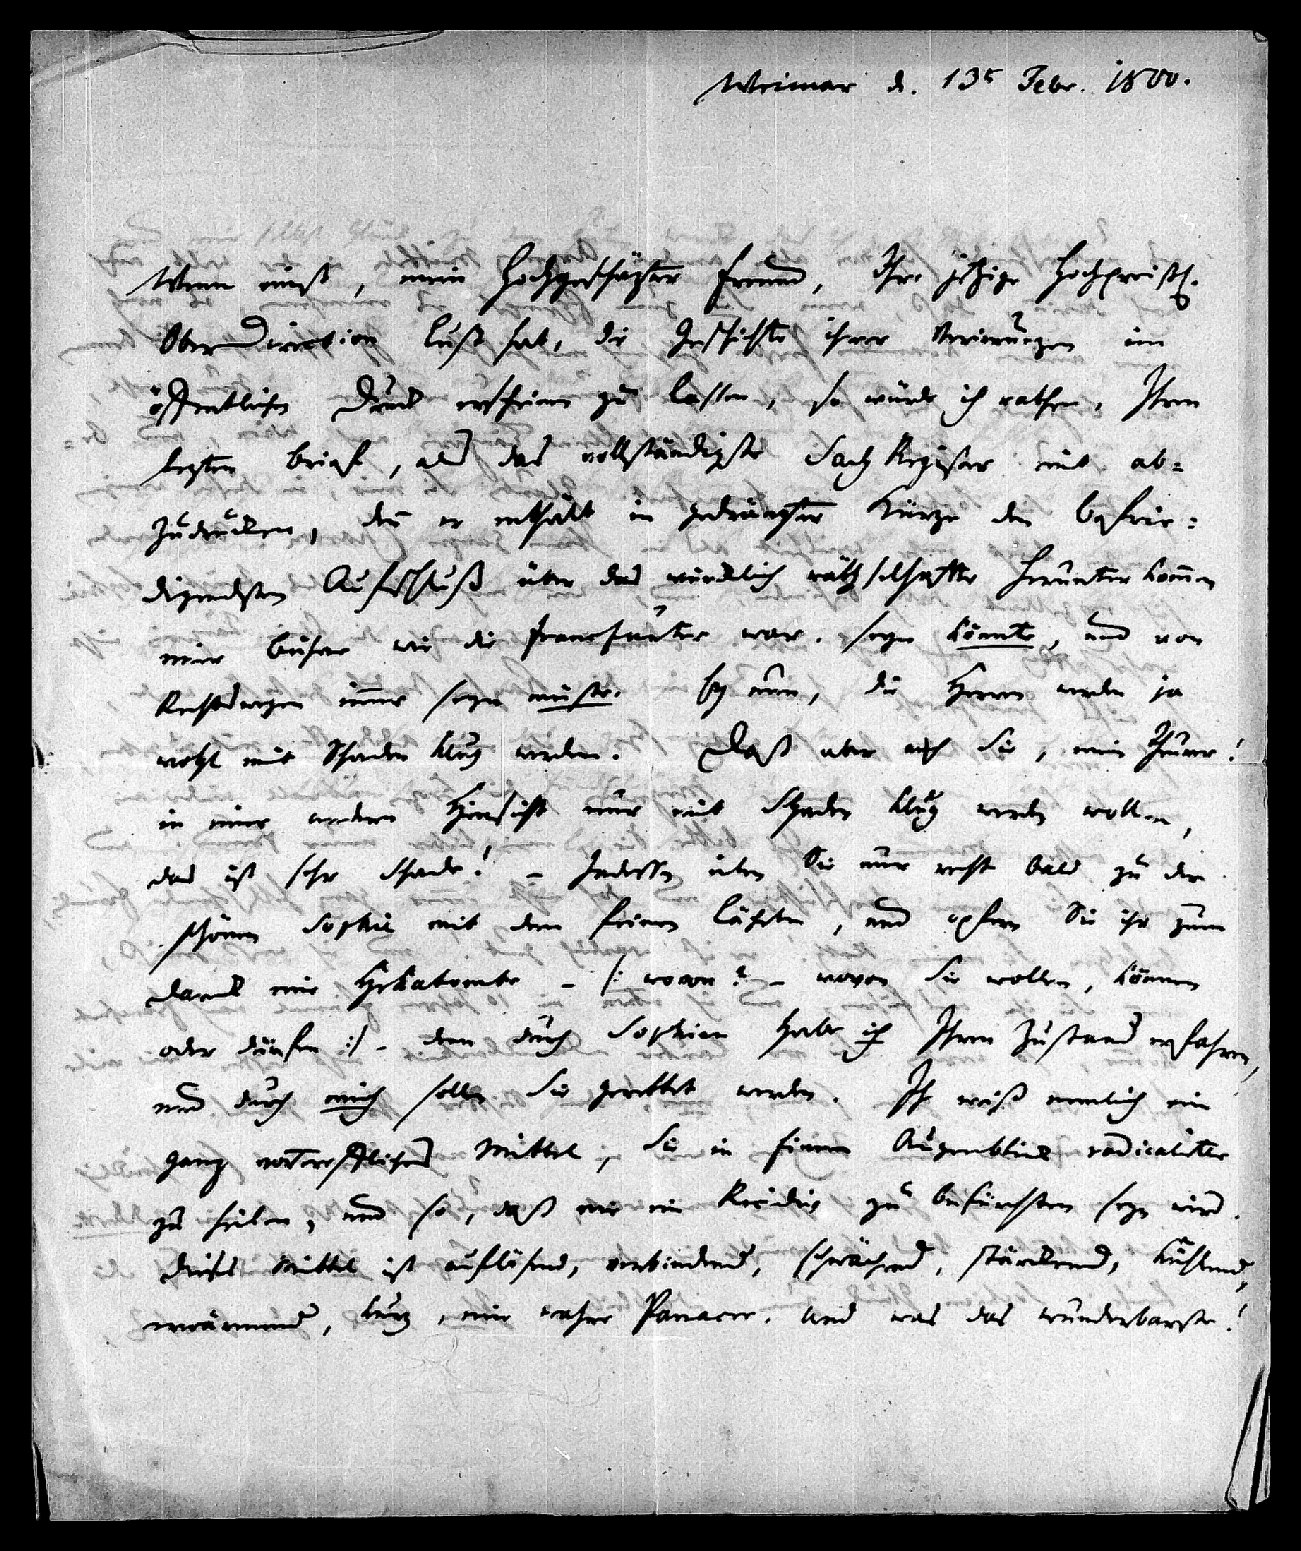 Weimar d. 13t Febr. 1800.
Wenn einst, mein Hochgeschäzter Freund, Ihre jetzige Hochpreißl.
Ober Direction Lust hat, die Geschichte ihrer Verirrungen im
öffentlichen Druck erscheinen zu lassen, so würde ich rathen, Ihren
lezten Brief, als das vollständigste Sach Register mit ab=
zudrucken, den er enthält in gedrängter Kürze den befrie=
digendsten Aufschluß über das würklich räthselhafte Herunterkom̄en
einer Bühne wie die Frankfurter war, seyn könnte, und von
Rechtswegen im̄er seyn müste. Ey nun, die Herren werden ja
wohl mit Schaden klug werden. Daß aber auch Sie, mein Theurer!
in einer andern Hinsicht nur mit Schaden klug werden wollen,
das ist sehr Schade! – Indessen eilen Sie nur recht bald zu der
schönen Sophie mit dem feinen Lächeln, und opfern Sie ihr zum
Dank eine Hekatombe – /: wovon? – wovon Sie wollen, können
oder dürfen :/ – denn durch Sophien habe ich Ihren Zustand erfahren,
und durch mich sollen Sie gerettet werden. Ich weiß nemlich ein
ganz vortreffliches Mittel, Sie in einem Augenblick radicaliter
zu heilen, und so, daß nie ein Recidiv zu befürchten seyn wird.
Dieses Mittel ist auflösend, verbindend, schwächend, stärkend, kühlend,
erwärmend, kurz, eine wahre Panacee. Und was das wunderbarste!